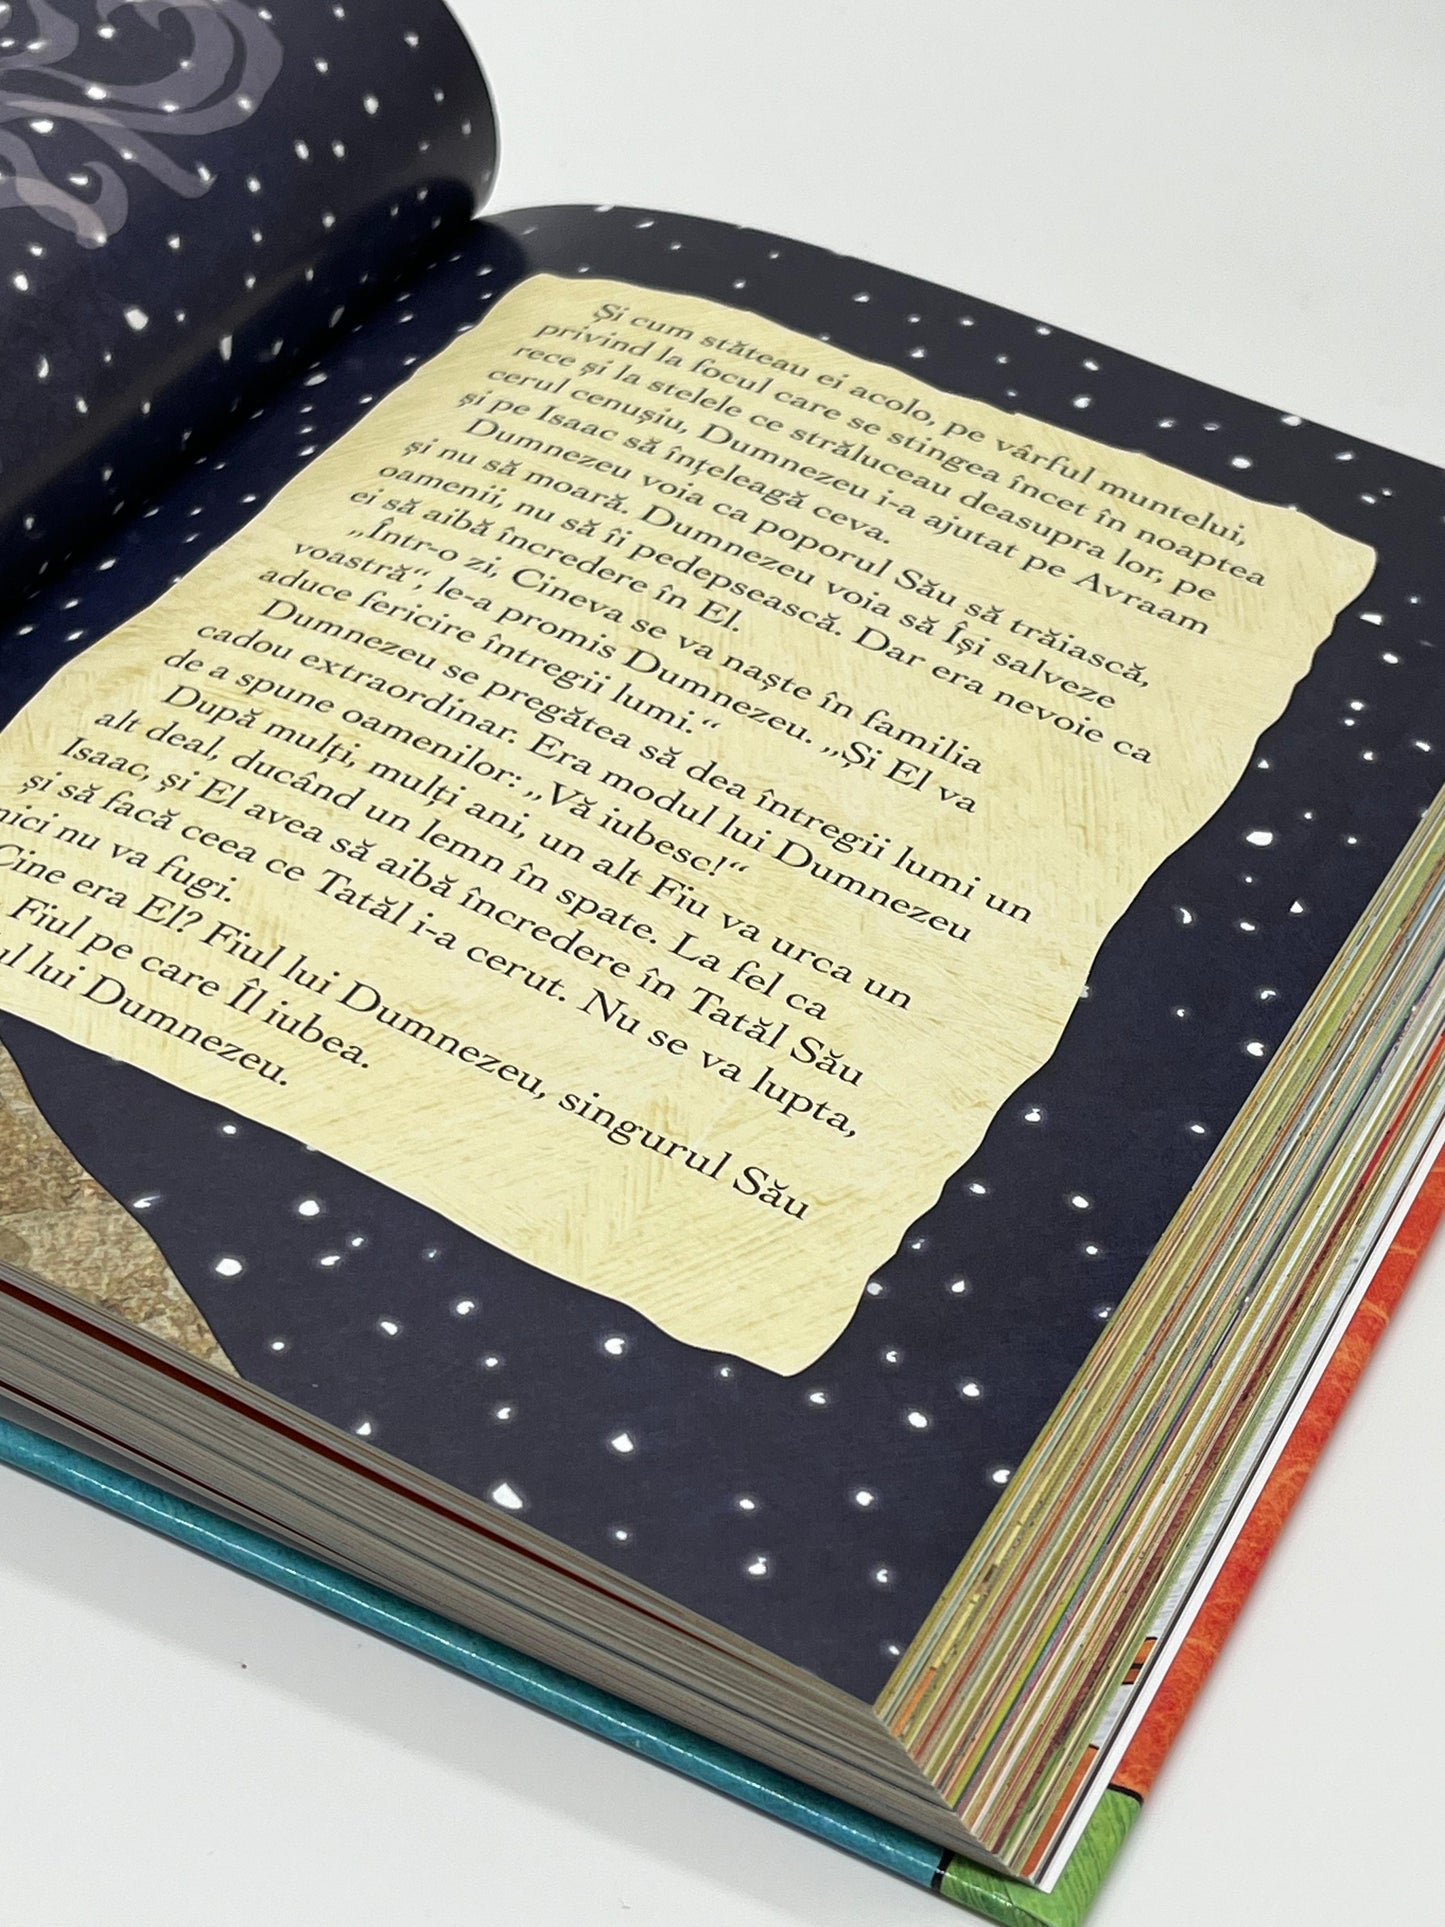 Și cum stăteau ei acolo, pe vârful muntelui,
privind la focul care se stingea încet în noaptea
rece și la stelele ce străluceau deasupra lor, pe
cerul cenușiu, Dumnezeu i-a ajutat pe Avraam
și pe Isaac să înțeleagă ceva.
Dumnezeu voia ca poporul Său să trăiască,
și nu să moară. Dumnezeu voia să Își salveze
oamenii, nu să îi pedepsească. Dar era nevoie ca
ei să aibă încredere în El.
„Într-o zi, Cineva se va naște în familia
voastră“, le-a promis Dumnezeu. „Și El va
aduce fericire întregii lumi.“
Dumnezeu se pregătea să dea întregii lumi un
cadou extraordinar. Era modul lui Dumnezeu
de a spune oamenilor: „Vă iubesc!“
După mulți, mulți ani, un alt Fiu va urca un
alt deal, ducând un lemn în spate. La fel ca
Isaac, și El avea să aibă încredere în Tatăl Său
și să facă ceea ce Tatăl i-a cerut. Nu se va lupta,
nici nu va fugi.
Cine era El? Fiul lui Dumnezeu, singurul Său
Fiul pe care Îl iubea.
lui Dumnezeu.